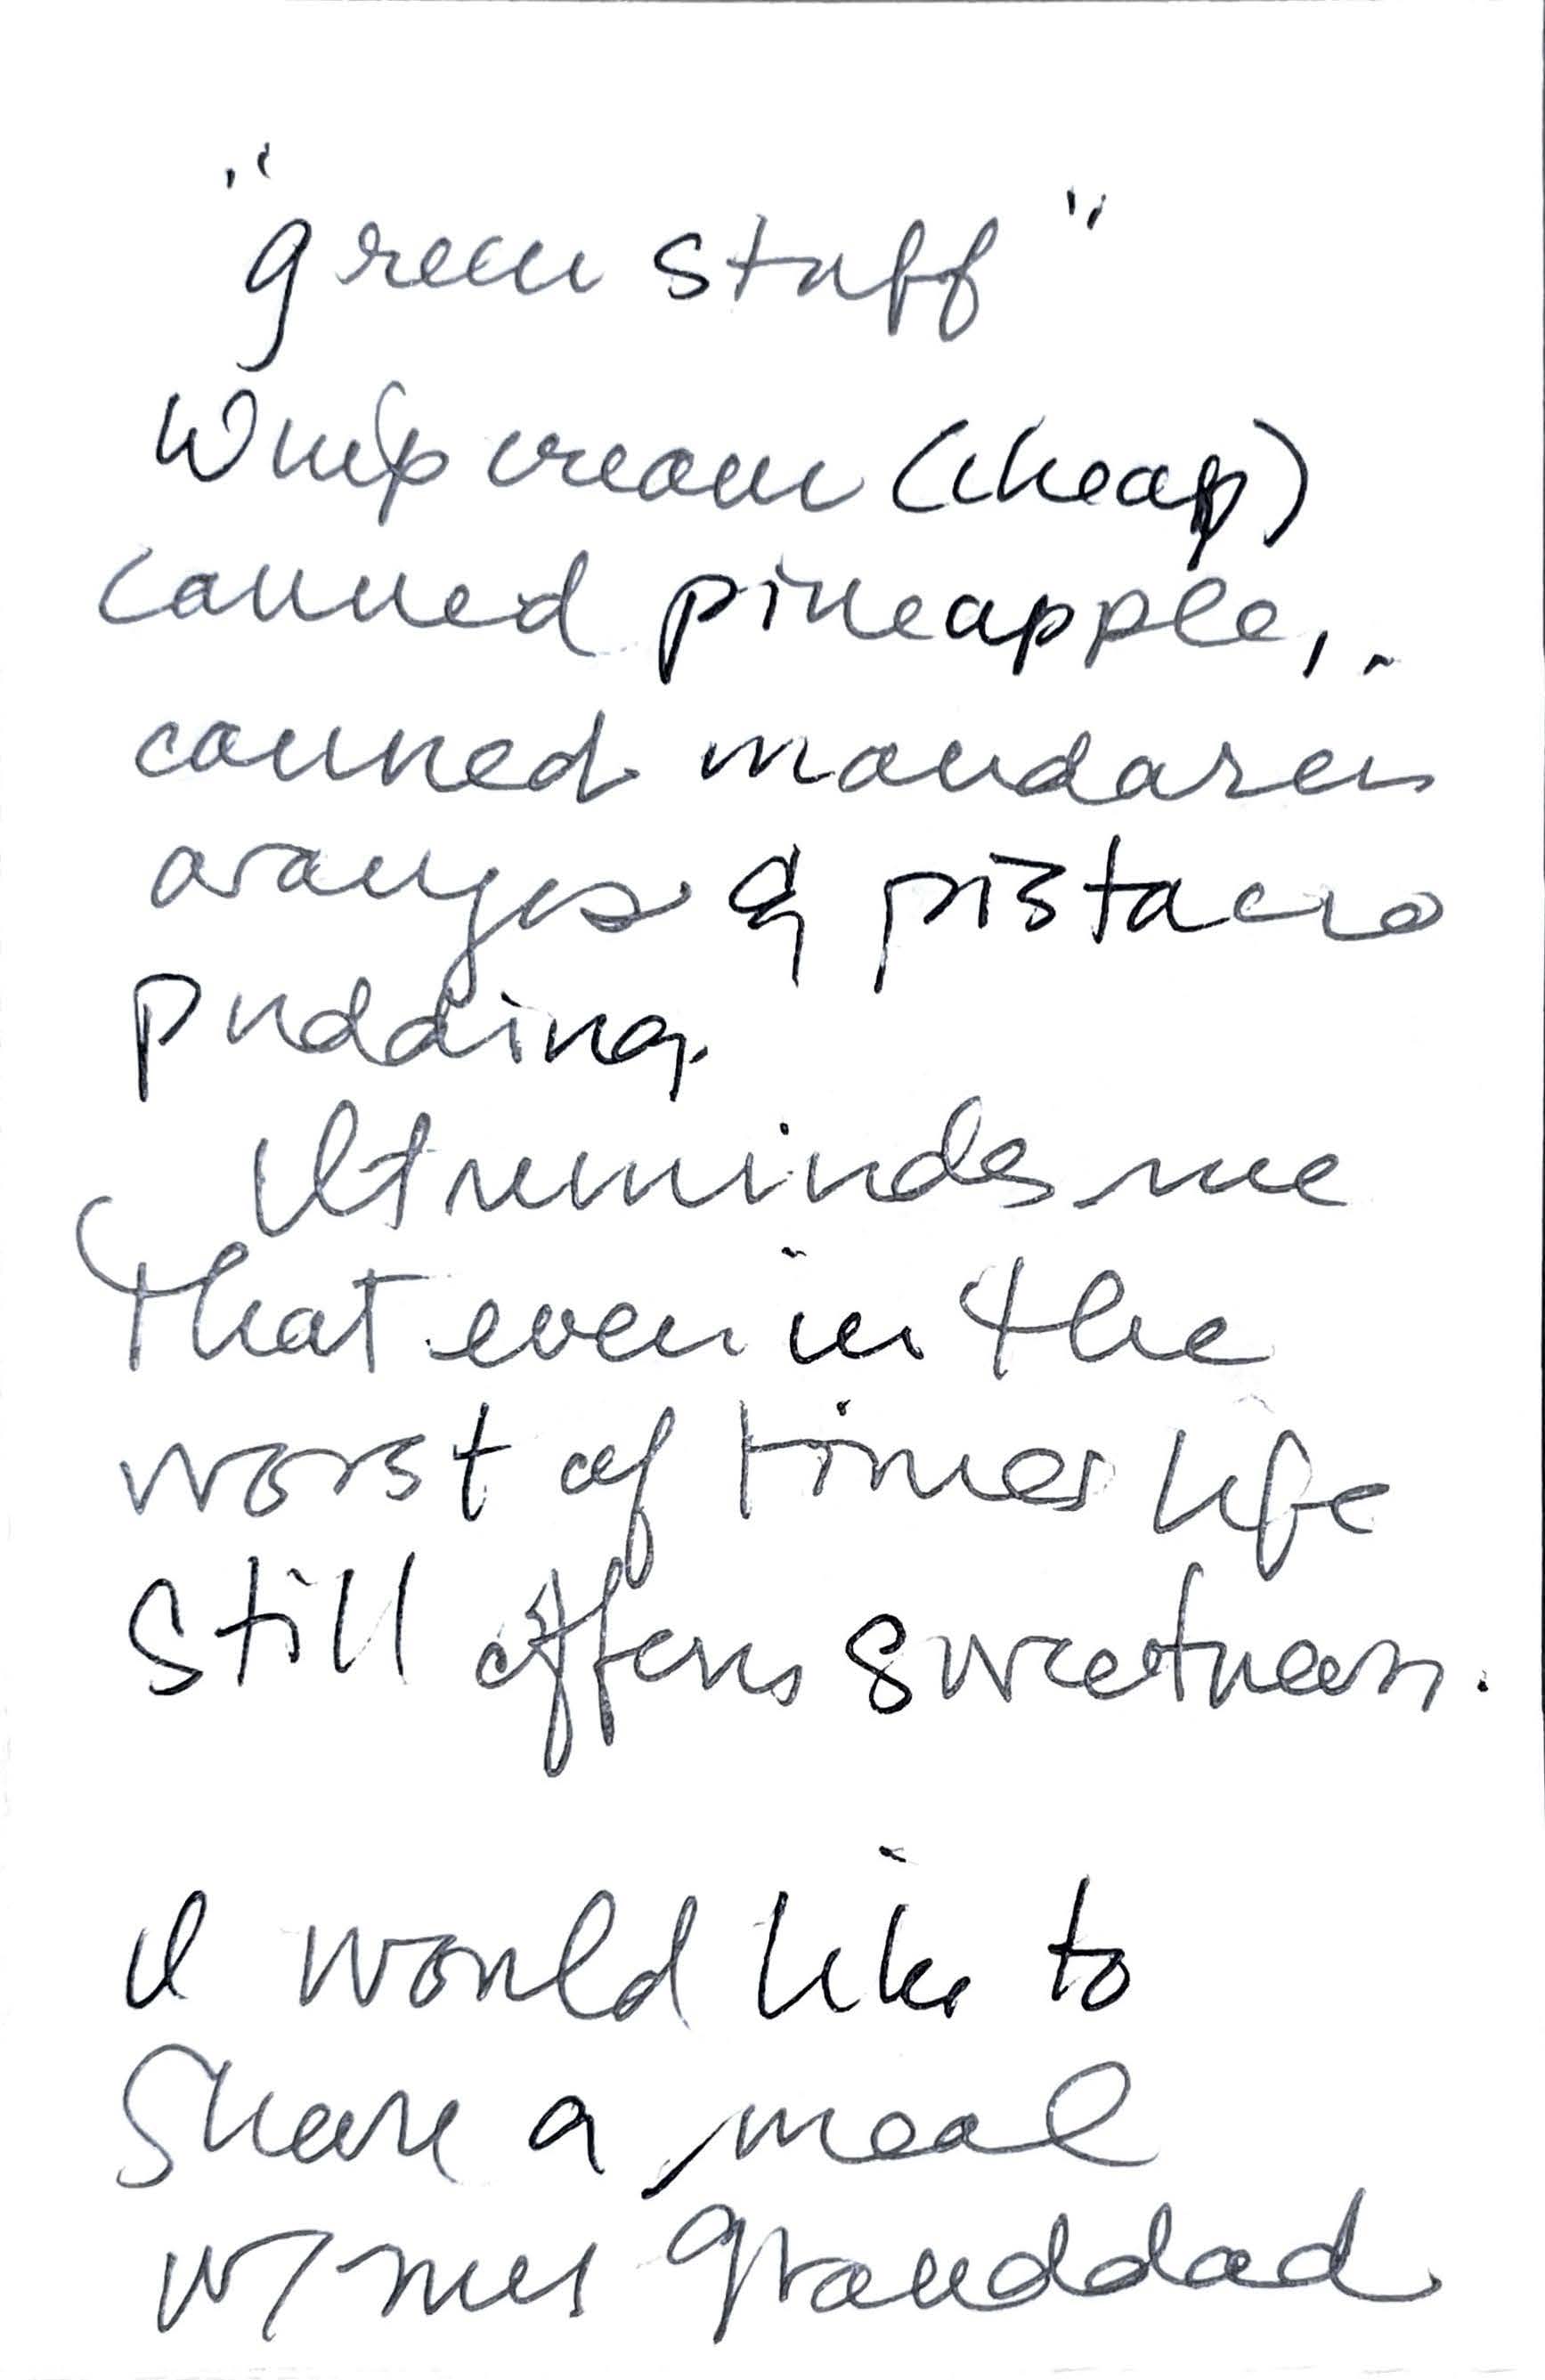 "green stuff"
Whip cream (cheap)
canned pineapple,
canned mandarin
oranges & pistacio
pudding.
It reminds me
that even in the
worst of times life
still offers sweetness.
I would like to
share a meal
w/ my Granddad